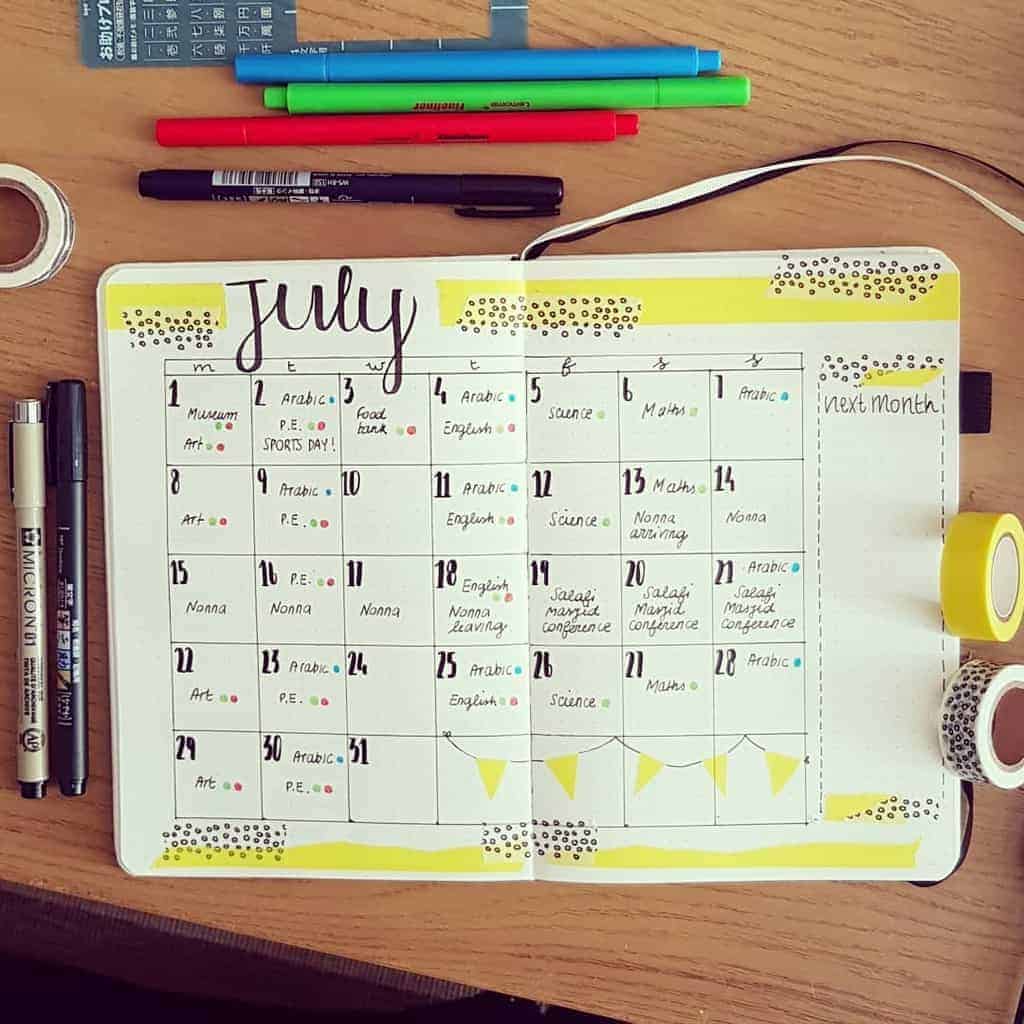 お助けプレ
一二三
壱弐参
六七八
陸柒捌
千万円
仟萬圓
fineliner
Lemome
WS-BH 150
July
m t w t f s s
next month
1 Museum
Art
2 Arabic
P.E.
SPORTS DAY!
3 Food
bank
4 Arabic
English
5
Science
6 Maths
7 Arabic
8
Art
9 Arabic
P.E.
10
11 Arabic
English
12
Science
13 Maths
Nonna
arriving
14
Nonna
15
Nonna
16 P.E.
Nonna
17
Nonna
18 English
Nonna
leaving
19 Salafi
Masjid
Conference
20 Salafi
Masjid
Conference
21 Arabic
Salafi
Masjid
Conference
22
Art
23 Arabic
P.E.
24
25 Arabic
English
26
Science
27
Maths
28 Arabic
29
Art
30 Arabic
P.E.
31
MICRON 01